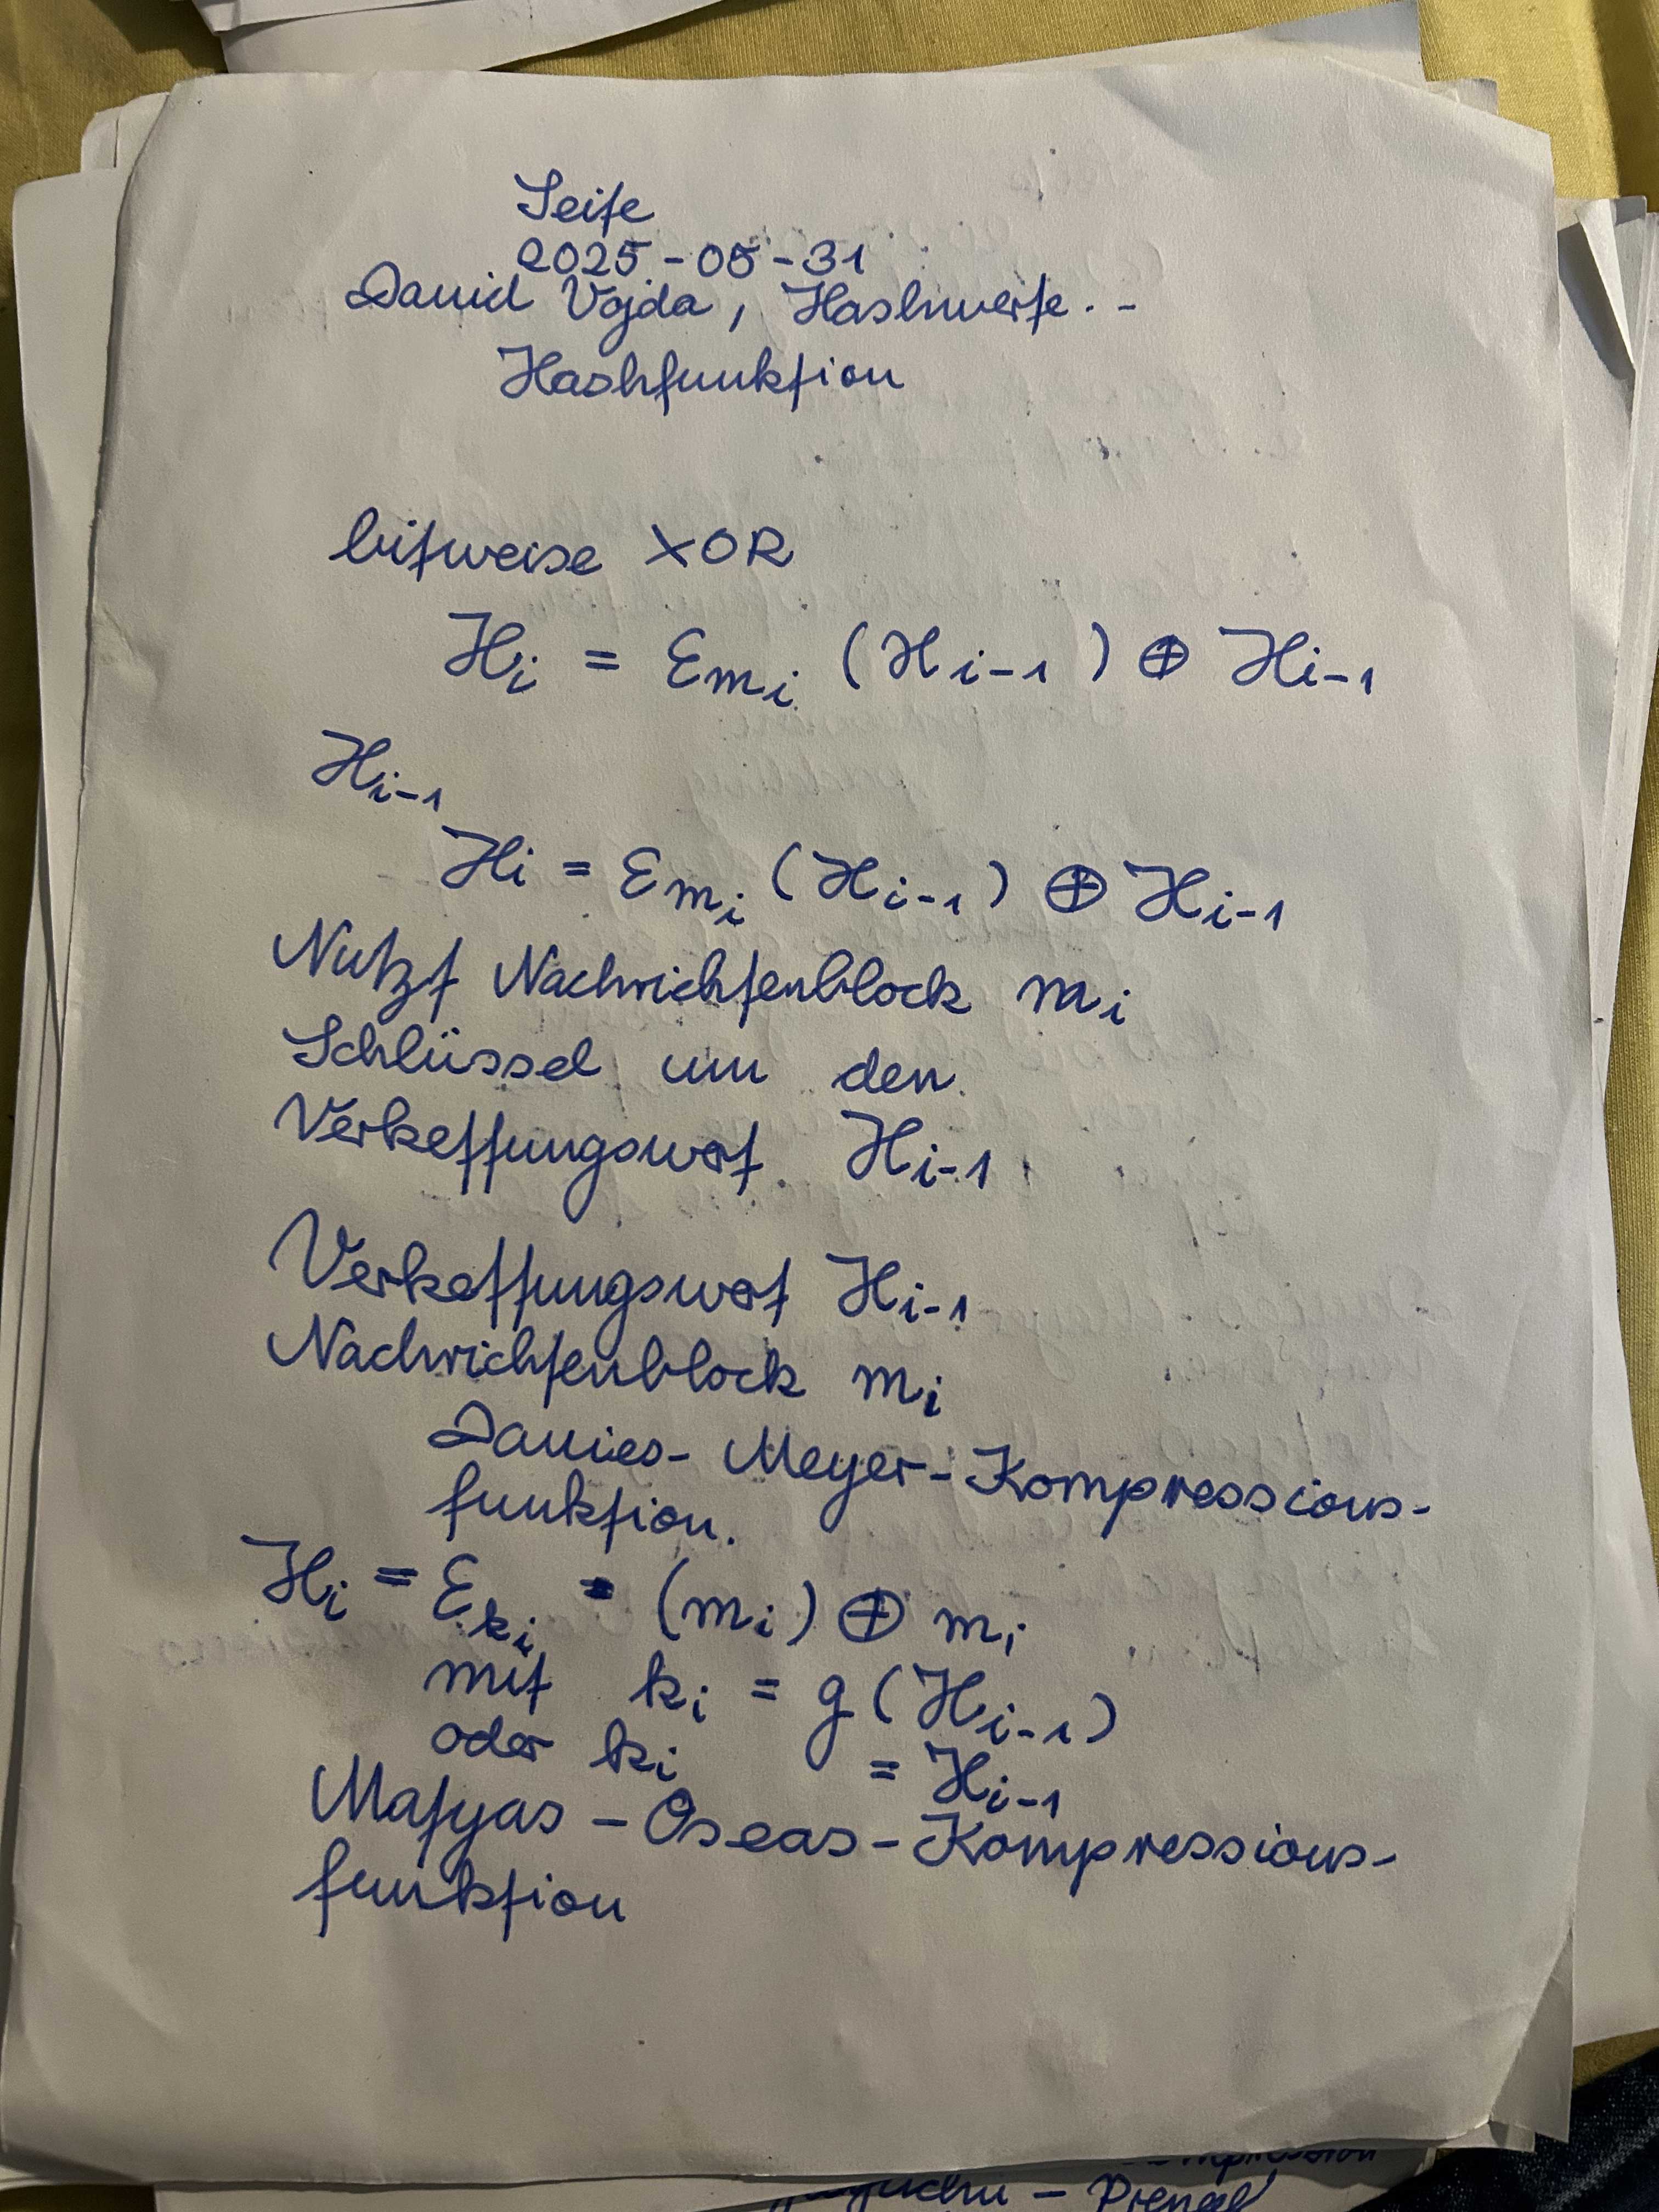 Seite
2025-05-31
David Vajda, Hashwerte..
Hashfunktion
bitweise XOR
Hi = Emi (Hi-1) ⊕ Hi-1
Hi-1
Hi = Emi (Hi-1) ⊕ Hi-1
Nutzt Nachrichtenblock mi
Schlüssel um den
Verkettungswert Hi-1
Verkettungswert Hi-1
Nachrichtenblock mi
Davies-Meyer-Kompressions-
funktion.
Hi = Eki = (mi) ⊕ mi
mit ki = g(Hi-1)
oder ki = Hi-1
Matyas-Oseas-Kompressions-
funktion